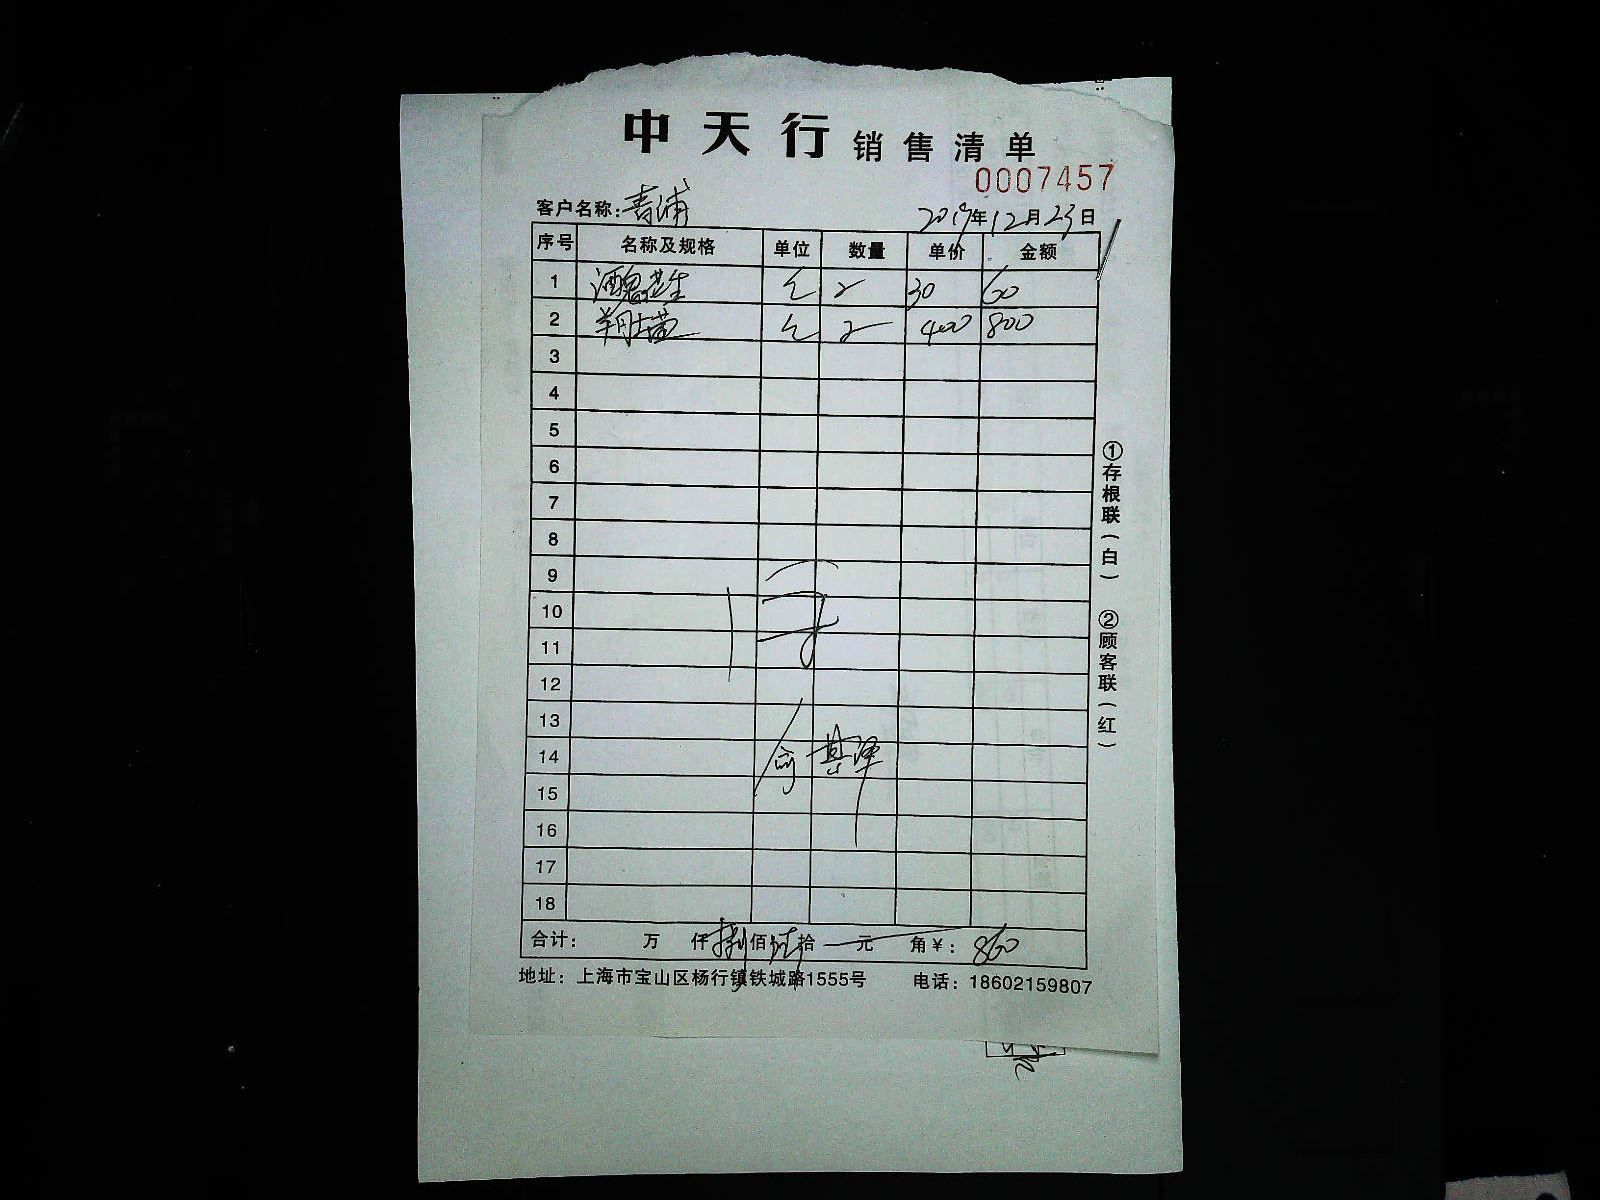 中天行 销售清单
0007457
客户名称：青浦 2019年12月23日
序号 名称及规格 单位 数量 单价 金额
1 酒鬼花生 2 30 60
2 2 400 800
3
4
5
6
7
8
9
10
11
12
13
14
15
16
17
18
合计： 万 仟捌佰陆拾一元 角￥：860
地址：上海市宝山区杨行镇铁城路1555号 电话：18602159807
①存根联（白） ②顾客联（红）